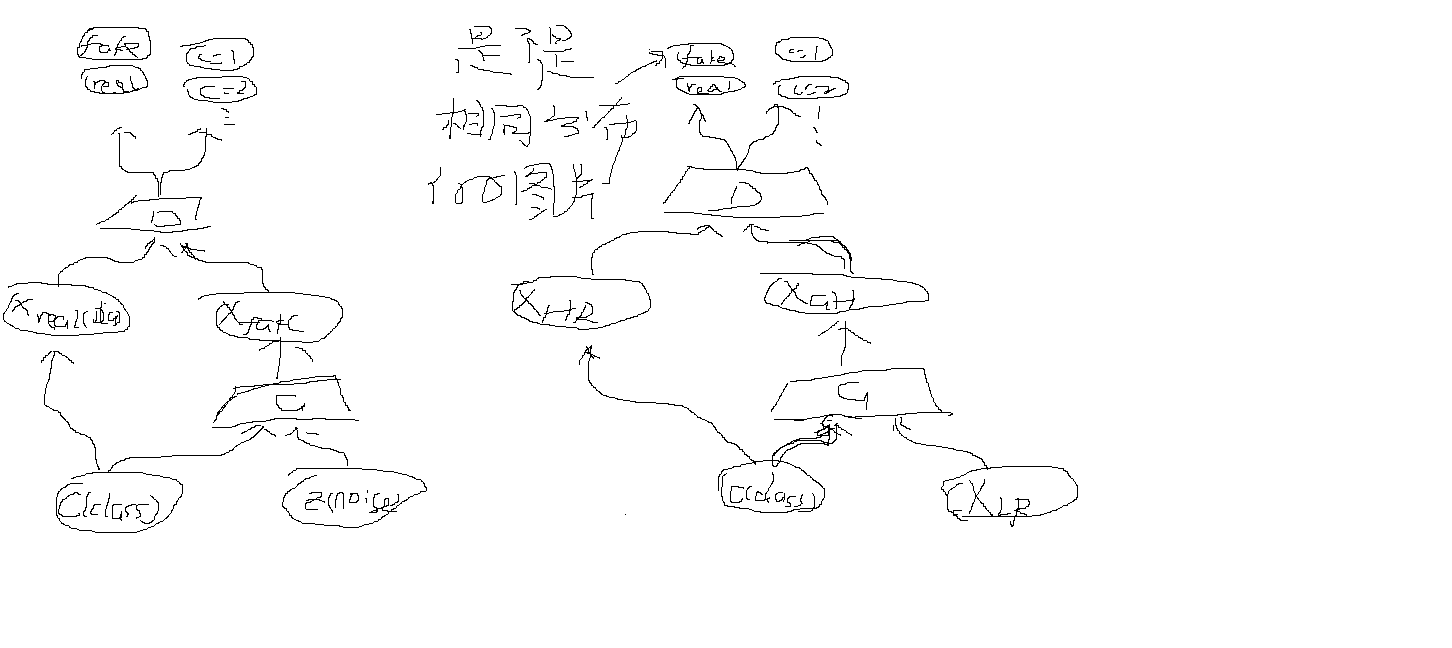 fake
real
c=1
c=2
D
X real(data)
X fake
G
C(class)
z(noise)
是不是
相同分布
的图片
fake
real
c=1
c=2
D
X HR
X GH
G
C(class)
X LR